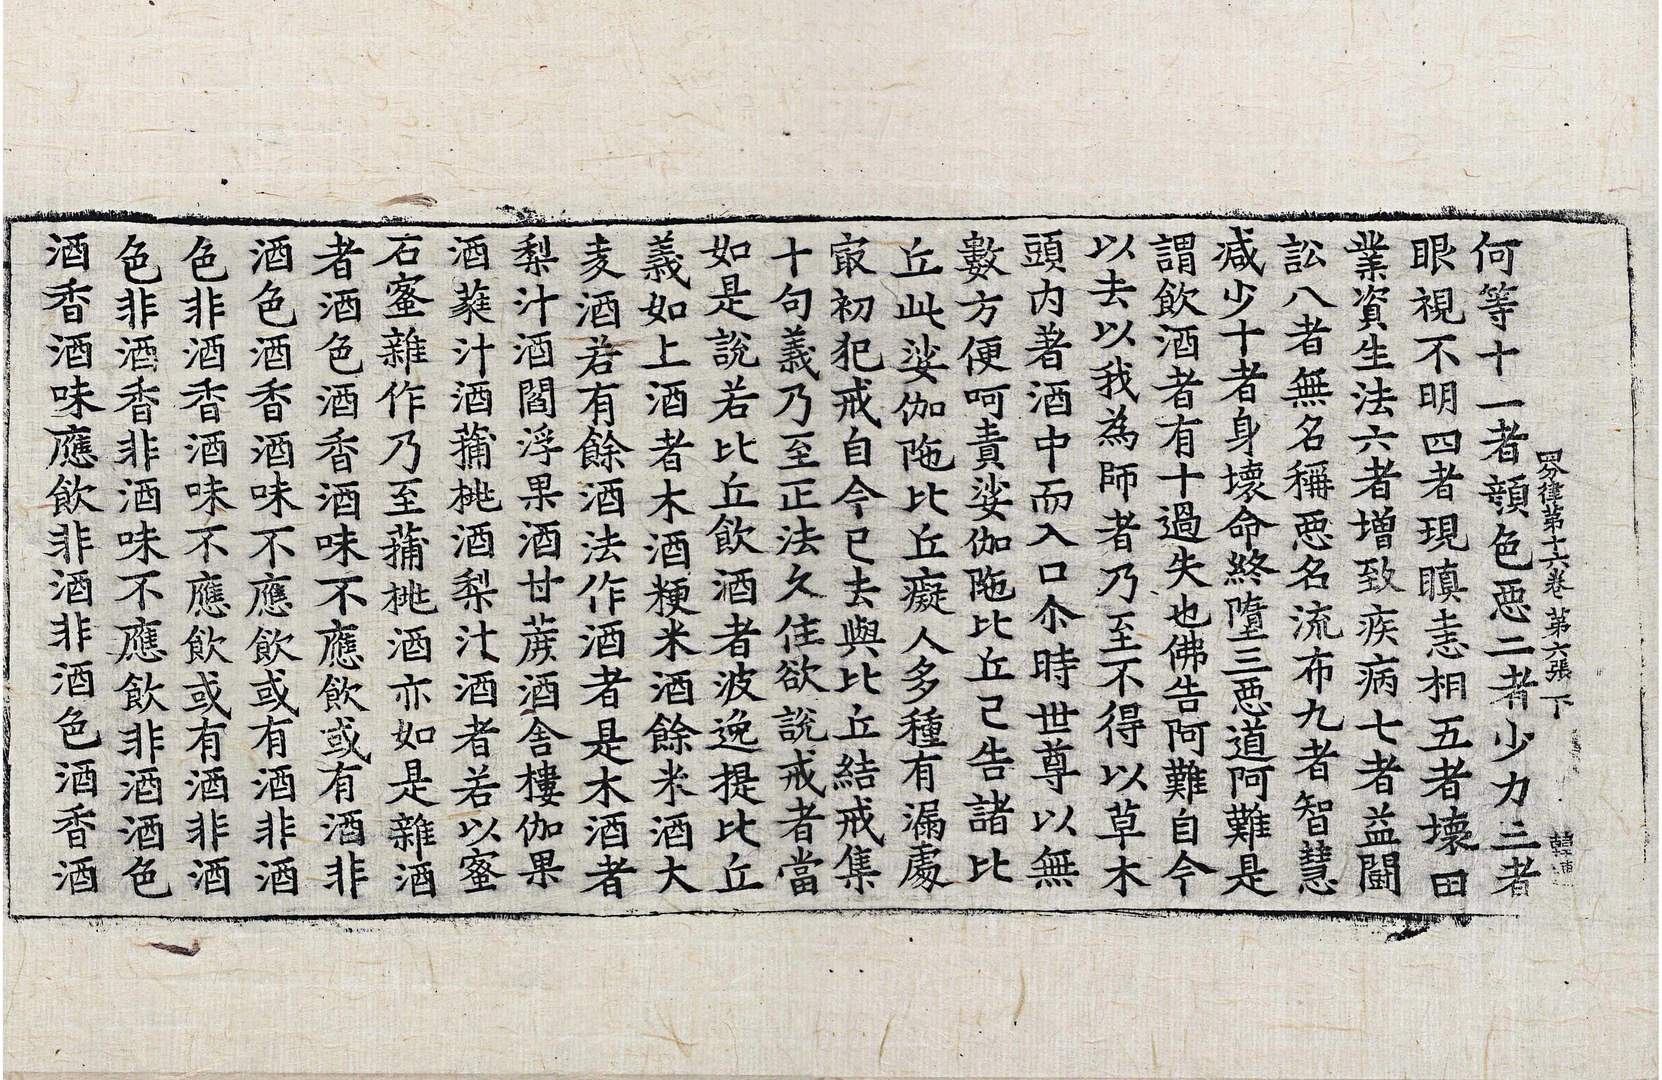 四分律第十六卷 第六張 下
何等十一者顔色惡二者少力三者
眼視不明四者現瞋恚相五者壞田
業資生法六者增致疾病七者益鬪
訟八者無名稱惡名流布九者智慧
減少十者身壞命終墮三惡道阿難是
謂飲酒者有十過失也佛告阿難自今
以去以我為師者乃至不得以草木
頭內著酒中而入口尒時世尊以無
數方便呵責娑伽陁比丘已告諸比
丘此娑伽陁比丘癡人多種有漏處
㝡初犯戒自今已去與比丘結戒集
十句義乃至正法久住欲說戒者當
如是說若比丘飲酒者波逸提比丘
義如上酒者木酒粳米酒餘米酒大
麦酒若有餘酒法作酒者是木酒者
梨汁酒閻浮果酒甘蔗酒舍樓伽果
酒蕤汁酒蒱桃酒梨汁酒者若以蜜
石蜜雜作乃至蒱桃酒亦如是雜酒
者酒色酒香酒味不應飲或有酒非
酒色酒香酒味不應飲或有酒非酒
色非酒香酒味不應飲或有酒非酒
色非酒香非酒味不應飲非酒酒色
酒香酒味應飲非酒非酒色酒香酒